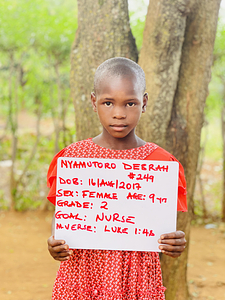 NYAMUTORO DEBRAH
#249
DOB: 16/AUG/2017
SEX: FEMALE AGE: 9YR
GRADE: 2
GOAL: NURSE
M.VERSE: LUKE 1:4